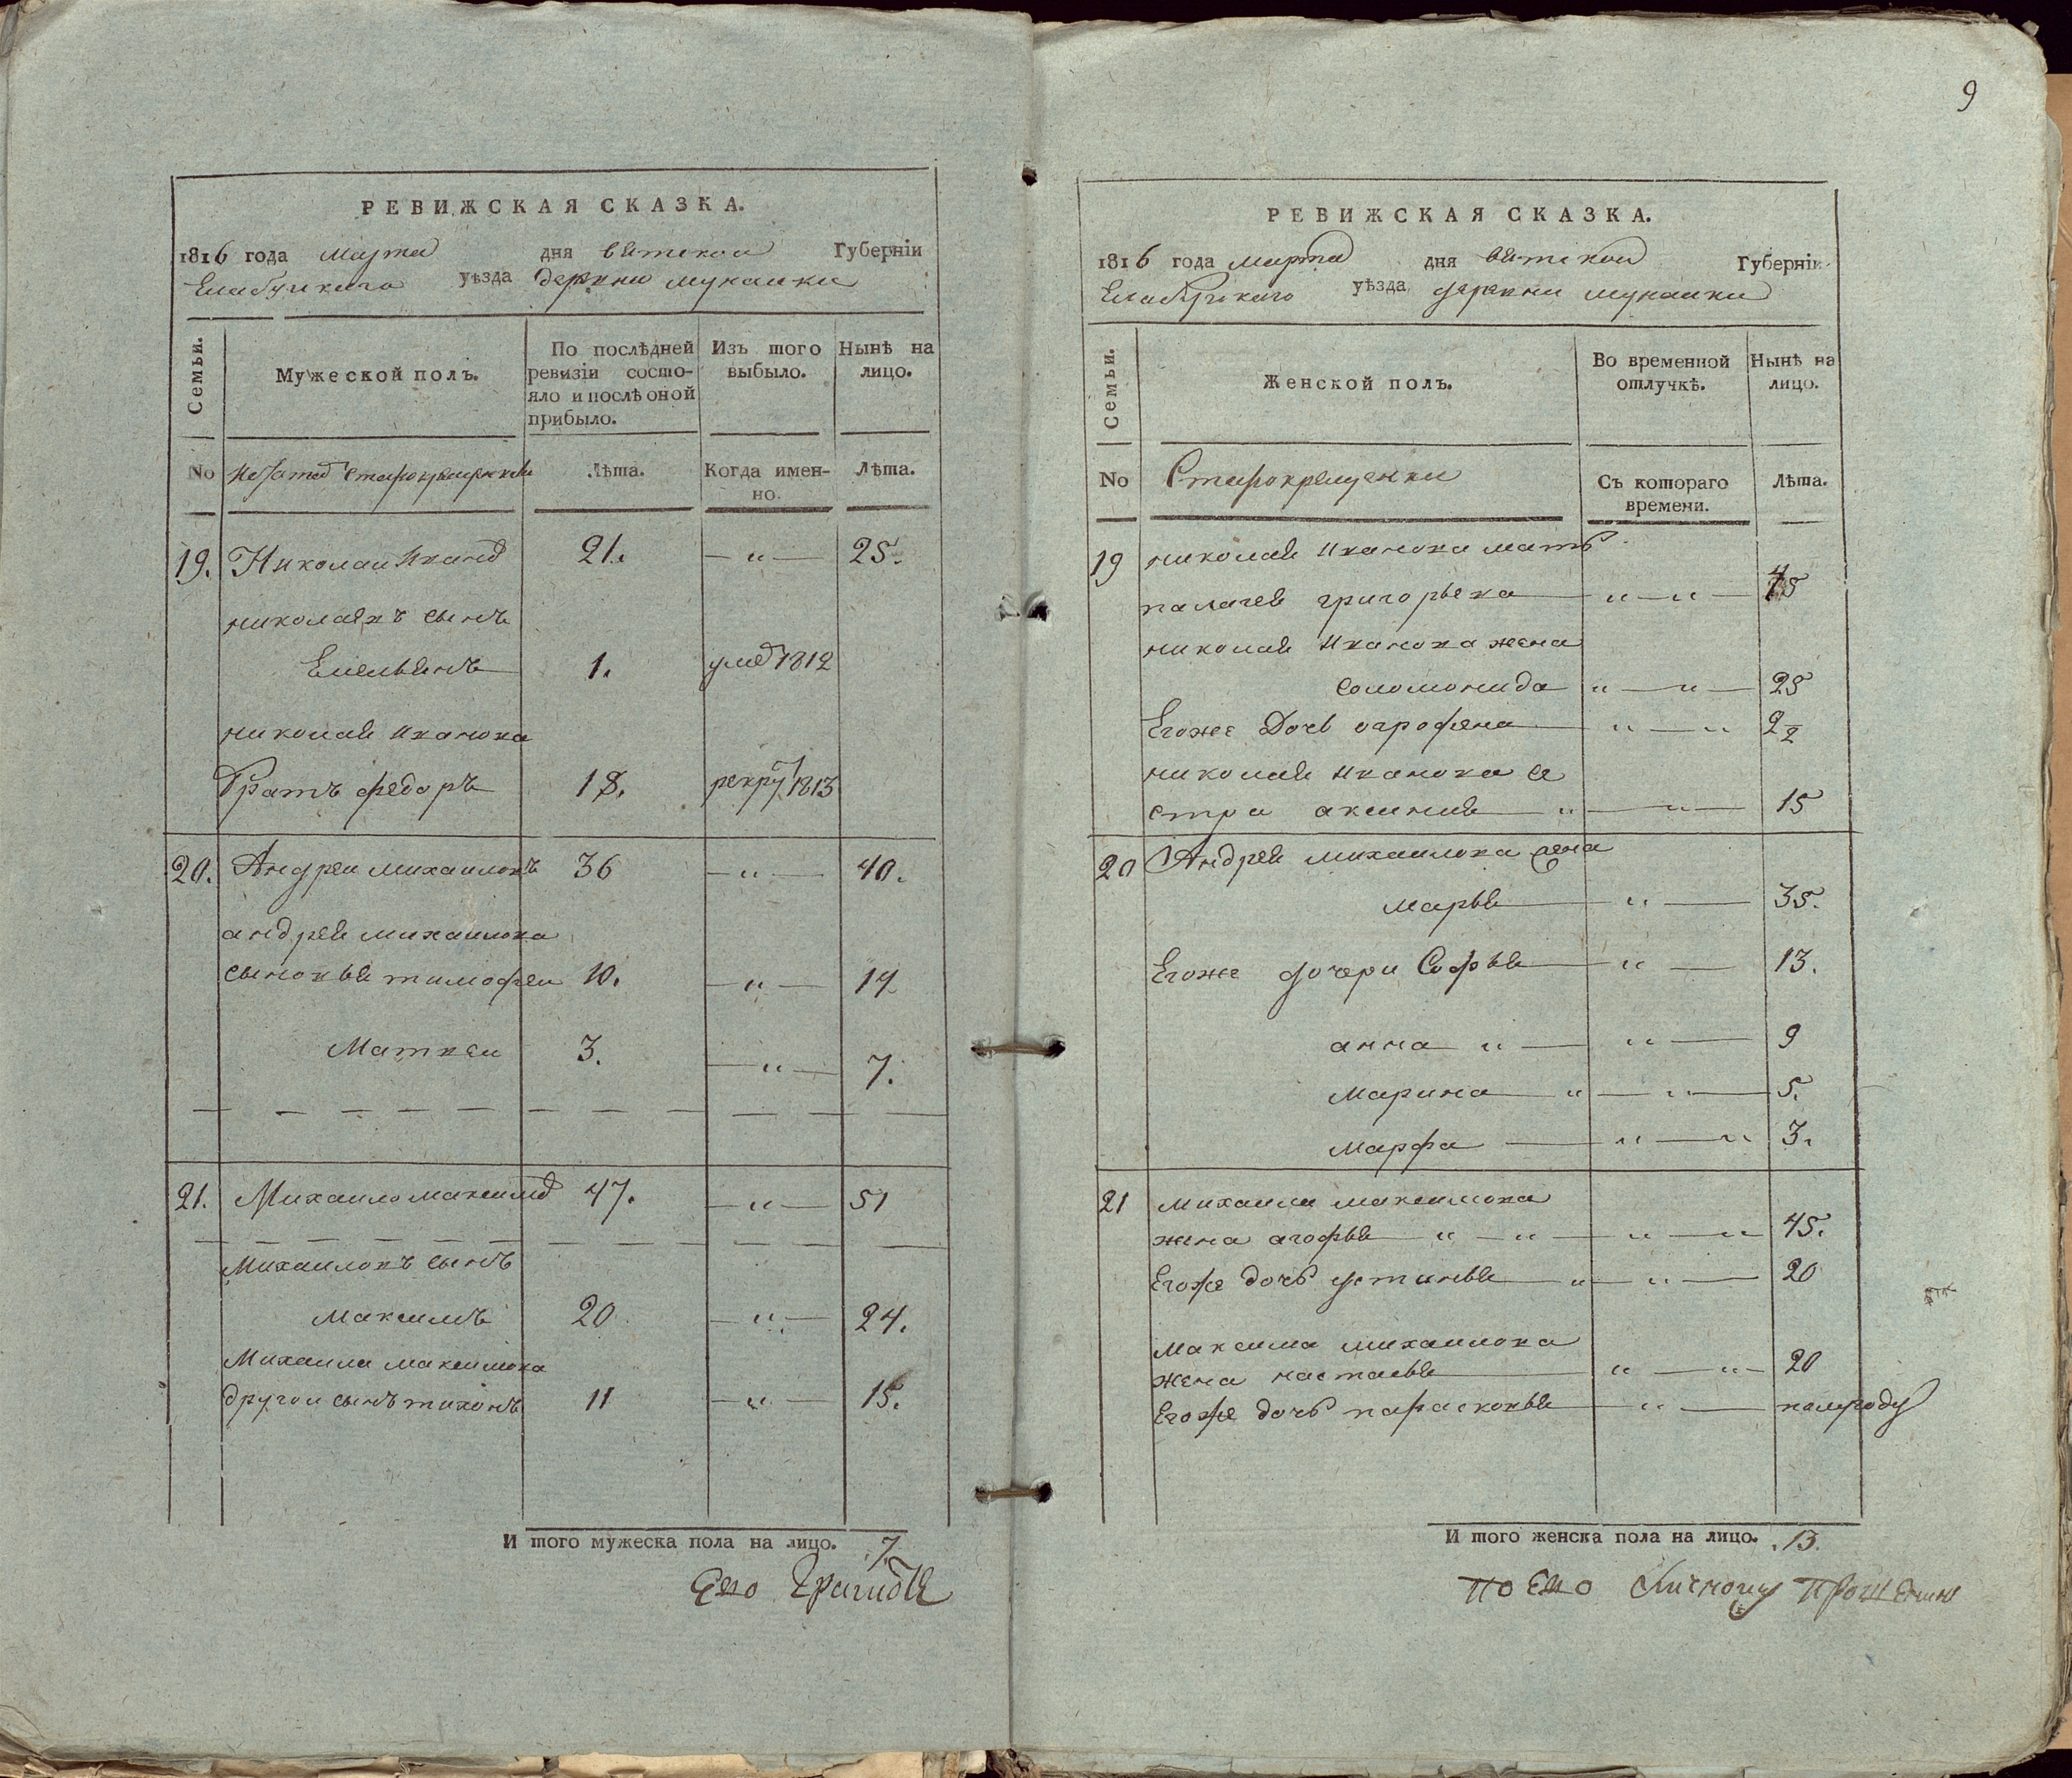 9
РЕВИЖСКАЯ СКАЗКА.
1816 года марта дня вятской Губерніи
Елабужского уѣзда деревни мунаики
Семьи.
Мужеской полъ.
По послѣдней ревизіи состо-
яло и послѣ оной
прибыло.
Изъ того
выбыло.
Нынѣ на
лицо.
No
старокрещенъ
Лѣта.
Когда имен-
но.
Лѣта.
19. Николаи Иванов 21. — „ — 25.
николаявъ сынъ
Емельянъ 1. умер 1812
николая иванова
Братъ федоръ 18. рекру 1813
20. Андреи михаиловъ 36 — „ — 40.
андрея михаилова
сыновья тимофеи 10. — „ — 14
Матвеи 3. — „ — 7.
21. Михаило максимов 47. — „ — 51
Михаиловъ сынъ
максимъ 20 — „ — 24.
Михаила максимова
другои сынъ тихонъ 11 — „ — 15.
И того мужеска пола на лицо. 7.
Ево
РЕВИЖСКАЯ СКАЗКА.
1816 года марта дня вятскои Губерніи
Елабужского уѣзда деревни мунаики
Семьи.
Женской полъ.
Во временной
отлучкѣ.
Нынѣ на
лицо.
No
Старокрещенки
Съ котораго
времени.
Лѣта.
19 николая иванова мать
палагея григорьева — „ — „ — 45
николая иванова жена
соломонида „ — „ — 25
Егоже Дочь огрофена — „ — „ 2½
николая иванова се
стра аксиния — „ — „ — 15
20 Андрея михаилова жена
марья — „ — 35.
Егоже дочери Софья — „ — 13.
анна „ — „ — 9
марина — „ — „ — 5.
марфа — „ — „ 3.
21 михаила максимова
жена агофья — „ — „ — „ — „ 45.
Егоже дочь устинья — „ — „ — 20
максима михаилова
жена настасья — „ — „ — 20
Егоже дочь парасковья — „ — полугоду
И того женска пола на лицо. 13.
по Ево личному прошению